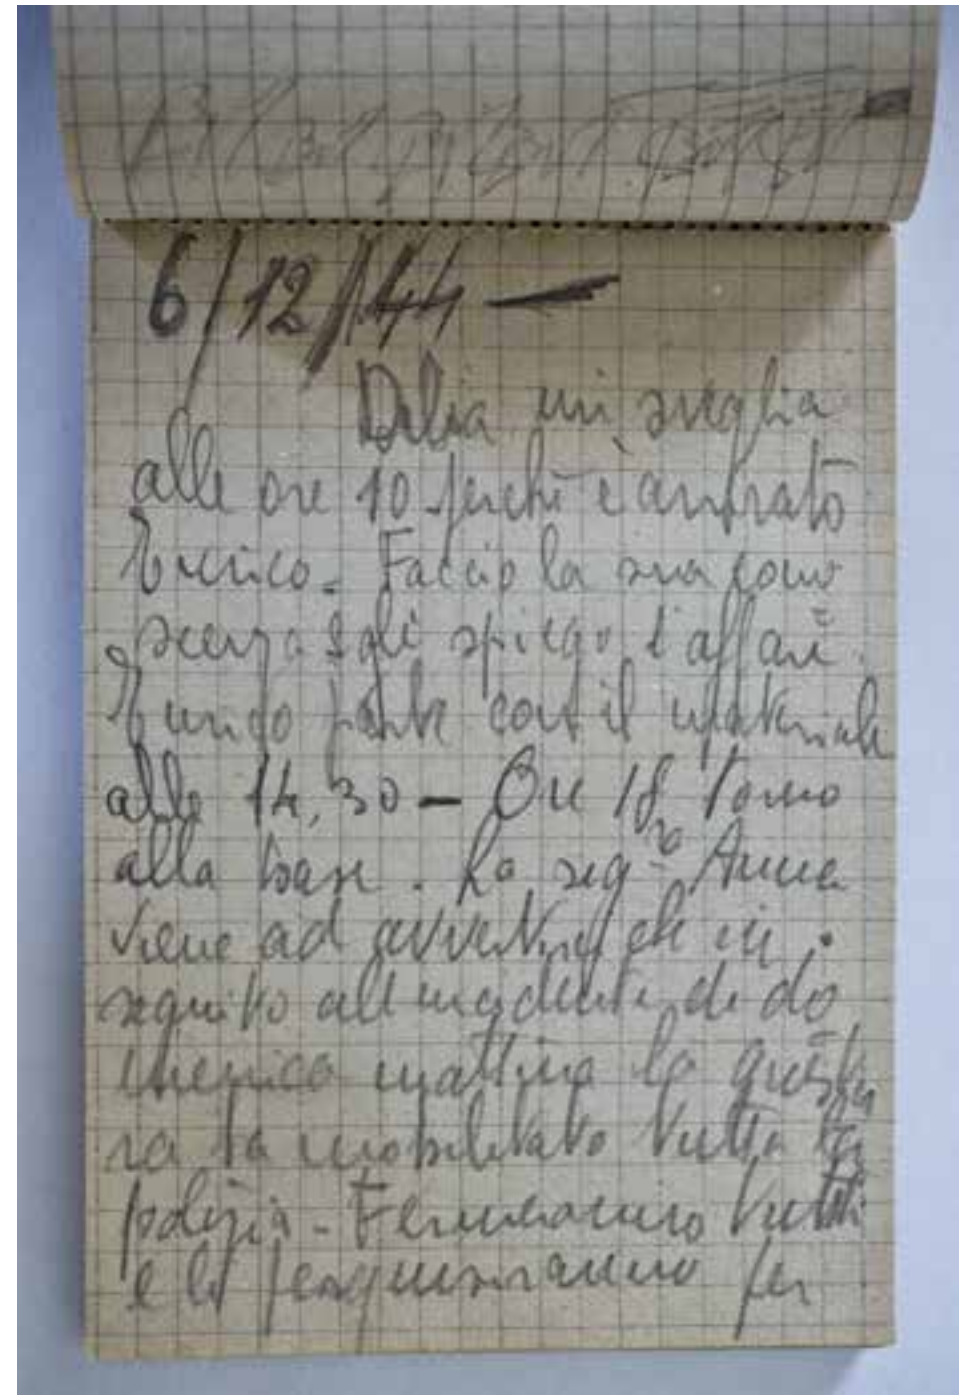 6/12/44 —
Delia mi sveglia
alle ore 10 perchè è arrivato
Enrico. Faccio la sua cono
scenza e gli spiego l'affare.
Enrico parte con il materiale
alle 14,30 — Ore 18 torno
alla base. La sig.ra Anna
viene ad avvertirci che in
seguito all'incidente di do
menica mattina la questu
ra ha mobilitato tutta la
polizia - Fermeranno tutti
e li perquisiranno per